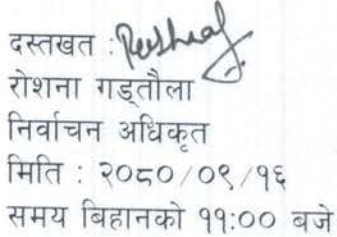 दस्तखत :
रोशना गड्तौला
निर्वाचन अधिकृत
मिति : २०८०/०९/१६
समय बिहानको ११:०० बजे